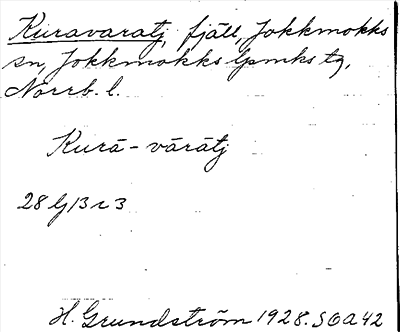 Kuravaratj, fjäll, Jokkmokks
sn, Jokkmokks lpmks tg,
Norrb. l.
Kurā-vārātj
28 G 13 r 3
H. Grundström 1928. SOA 42